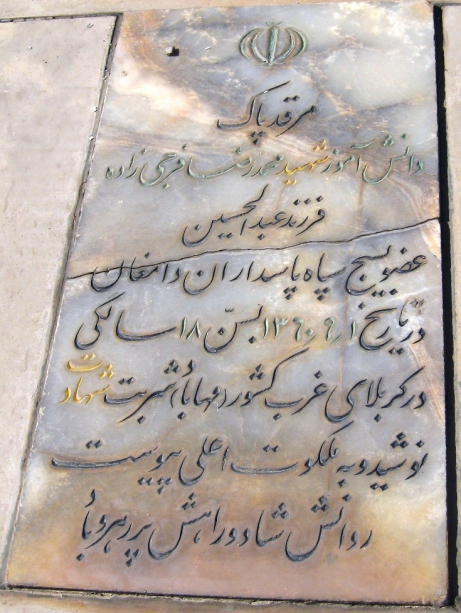 مرقد پاک
دانش آموز شهید محمدرضا فرجی زاده
فرزند عبدالحسین
عضو بسیج سپاه پاسداران دامغان
در تاریخ ۱۳۶۰٫۹٫۱ بسنّ ۱۸ سالگی
در کربلای غرب کشور (مهاباد) شربت شهادت
نوشید و به ملکوت اعلی پیوست
روانش شاد و راهش پر رهرو باد